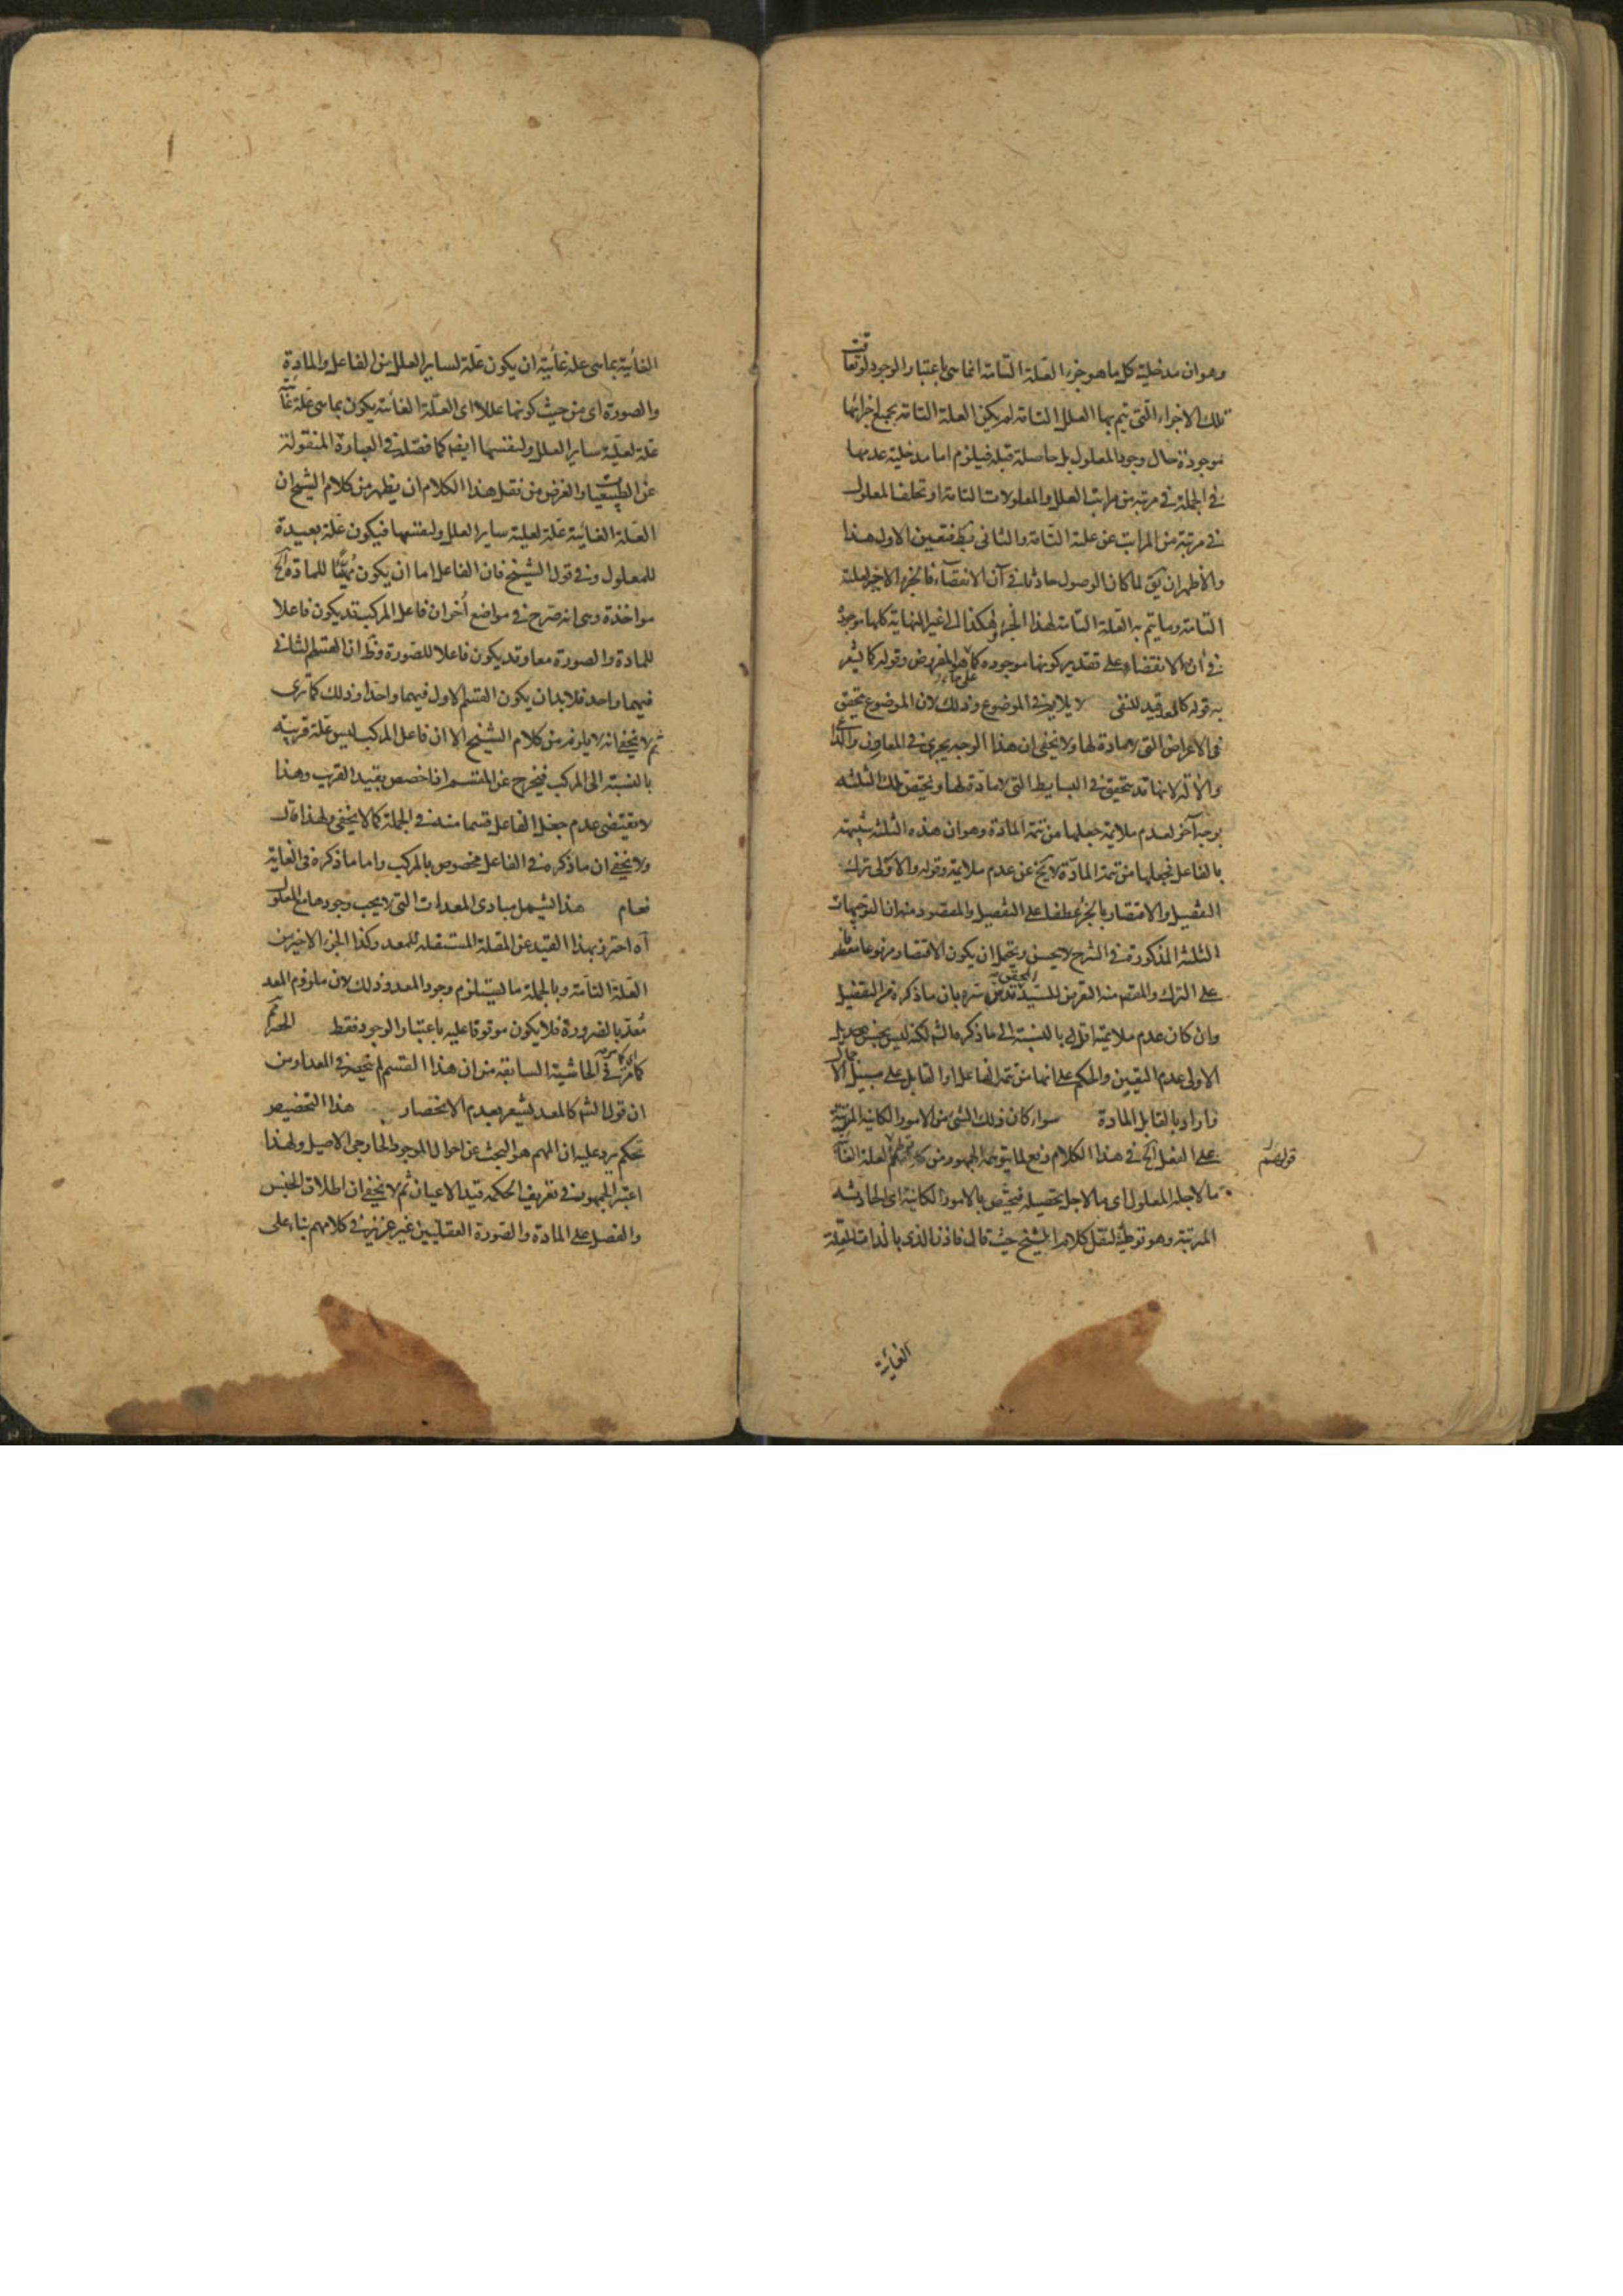 وهو ان مدخلية كل ما هو جزء العلة التامة انما هى باعتبار الوجود لو تعاقبت
تلك الاجزاء التى يتم بها العلل التامة لم يكن العلة التامة بجميع اجزائها
موجودة حال وجود المعلول بل حاصلة قبله فيلزم اما مدخلية عدمها
فى الجملة فى مرتبة من مراتب العلل والمعلولات التامة او تخلف المعلول
فى مرتبة من المراتب عن علته التامة والثانى بط فتعين الاول هذا
والاظهر ان يق لما كان الوصول حادثا فى آن الانقضاء فالجزء الاخير لعلته
التامة وما يتم به العلة التامة لهذا الجزء وهكذا الى غير النهاية كلها موجودة
فى آن الانقضاء على تقدير كونها موجودة كما هو المفروض وقوله كما يشعر
به قوله كالمعد قيد للنفى لا يلايم فى الموضوع وذلك لان الموضوع يتحقق
فى الاعراض التى لا مادة لها ولا يخفى ان هذا الوجه يجرى فى المعاون والداعى
والآلة لانها قد يتحقق فى البسايط التى لا مادة لها ويختص تلك الثلثة
بوجه آخر لعدم ملايمة جعلها من تتمة المادة وهو ان هذه الثلثة شبيهة
بالفاعل فجعلها من تتمة المادة لا يخ عن عدم ملايمة وقوله والاولى ترك
التفصيل والاقتصار بالجر عطفا على التفصيل والمقصود منه ان التوجيهات
الثلثة المذكورة فى الشرح لا يحسن ويحتمل ان يكون الاقتصار مرفوعا معطوفا
على الترك والمقصد منه التعريض للسيد المحقق قدس سره بان ما ذكره من التفصيل
وان كان عدم ملايمته اقل بالنسبة الى ما ذكره الشم لكنه ليس بحسن
الاولى عدم التعيين والحكم على انها من تتمة الفاعل او القابل على سبيل الاجمال
واراد بالقابل المادة سواء كان ذلك الشى من الامور الكائنة المترتبة
على الفعل آلخ فى هذا الكلام دفع لما يتوهمه الجمهور من العلة الغائية
ما لاجله المعلول اى ما لاجل تحصيله فيختص بالامور الكائنة اى الحادثة
المترتبة وهو توطئة لنقل كلام الشيخ حيث قال فاذن الذى بالذات لعلة
قولهم
الغائية
الغائية بما هى علة غائية ان يكون علة لساير العلل من الفاعل والمادة
والصورة اى من حيث كونها عللا اى العلة الغائية يكون بما هى علة غائية
علة لعلية ساير العلل ولنفسها ايضا كما فصله فى العبارة المنقولة
عن الطبيعيات والغرض من نقل هذا الكلام ان يظهر من كلام الشيخ ان
العلة الغائية علة لعلية ساير العلل ولنفسها فيكون علة بعيدة
للمعلول وفى قول الشيخ فان الفاعل اما ان يكون مهيئا للمادة آلخ
مواخذة وهى انه صرح فى مواضع أخر ان فاعل المركب قد يكون فاعلا
للمادة والصورة معا وقد يكون فاعلا للصورة وظ ان القسم الثانى
فيهما واحد فلا بد ان يكون القسم الاول فيهما واحدا وذلك كما ترى
ثم لا يخفى انه لا يلزم من كلام الشيخ الا ان فاعل المركب ليس علة قريبة
بالنسبة الى المركب فيخرج عن المقسم اذا خصص بقيد القريب وهذا
لا يقتضى عدم جعل الفاعل قسما منه فى الجملة كما لا يخفى ولهذا قال
ولا يخفى ان ما ذكره فى الفاعل مخصوص بالمركب واما ما ذكره فى الغاية
فعام هذا يشمل مبادى المعدات التى لا يجب وجودها مع المعلول
آه احترز بهذا القيد عن العلة المستقلة للمعد وكذا الجزء الاخير من
العلة التامة وبالجملة ما يستلزم وجود المعد وذلك لان ملزوم المعد
معد بالضرورة فلا يكون موقوفا عليه باعتبار الوجود فقط الحصر ثم
كما مر فى الحاشية السابقة من ان هذا القسم لم يحصر فى المعد او من
ان قول الشم كالمعد يشعر بعدم الانحصار هذا التخصيص
تحكم يرد عليه ان المهم هو البحث عن احوال الموجود الخارجى الاصيل ولهذا
اعتبر الجمهور فى تعريف الحكمة قيد الاعيان ثم لا يخفى ان اطلاق الجنس
والفصل على المادة والصورة العقليين غير عزيز فى كلامهم بناء على